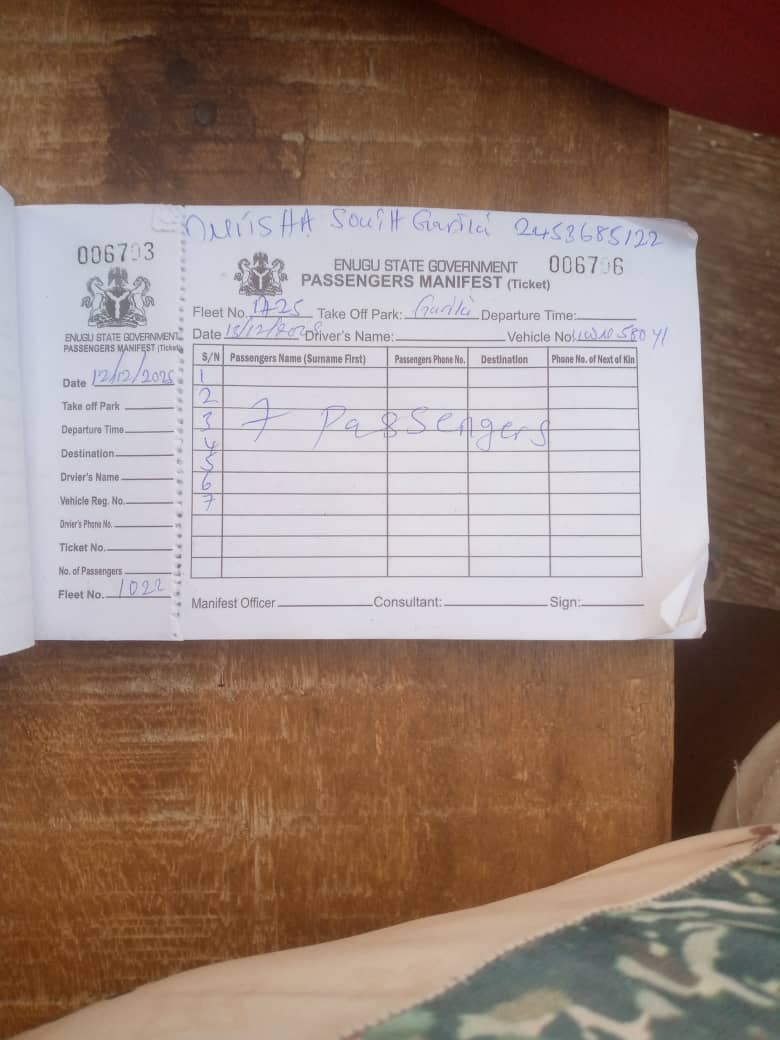 006703
ENUGU STATE GOVERNMENT
PASSENGERS MANIFEST (Ticket)
Date 12/12/2025
Take off Park
Departure Time
Destination
Drvier's Name
Vehicle Reg. No.
Drvier's Phone No.
Ticket No.
No. of Passengers
Fleet No. 1022
South Garilli 2453685122
ENUGU STATE GOVERNMENT 006706
PASSENGERS MANIFEST (Ticket)
Fleet No. Take Off Park: Departure Time:
Date Driver's Name: Vehicle No: 580 Y1
S/N Passengers Name (Surname First) Passengers Phone No. Destination Phone No. of Next of Kin
1
2
3 7 Passengers
4
5
6
7
Manifest Officer Consultant: Sign: